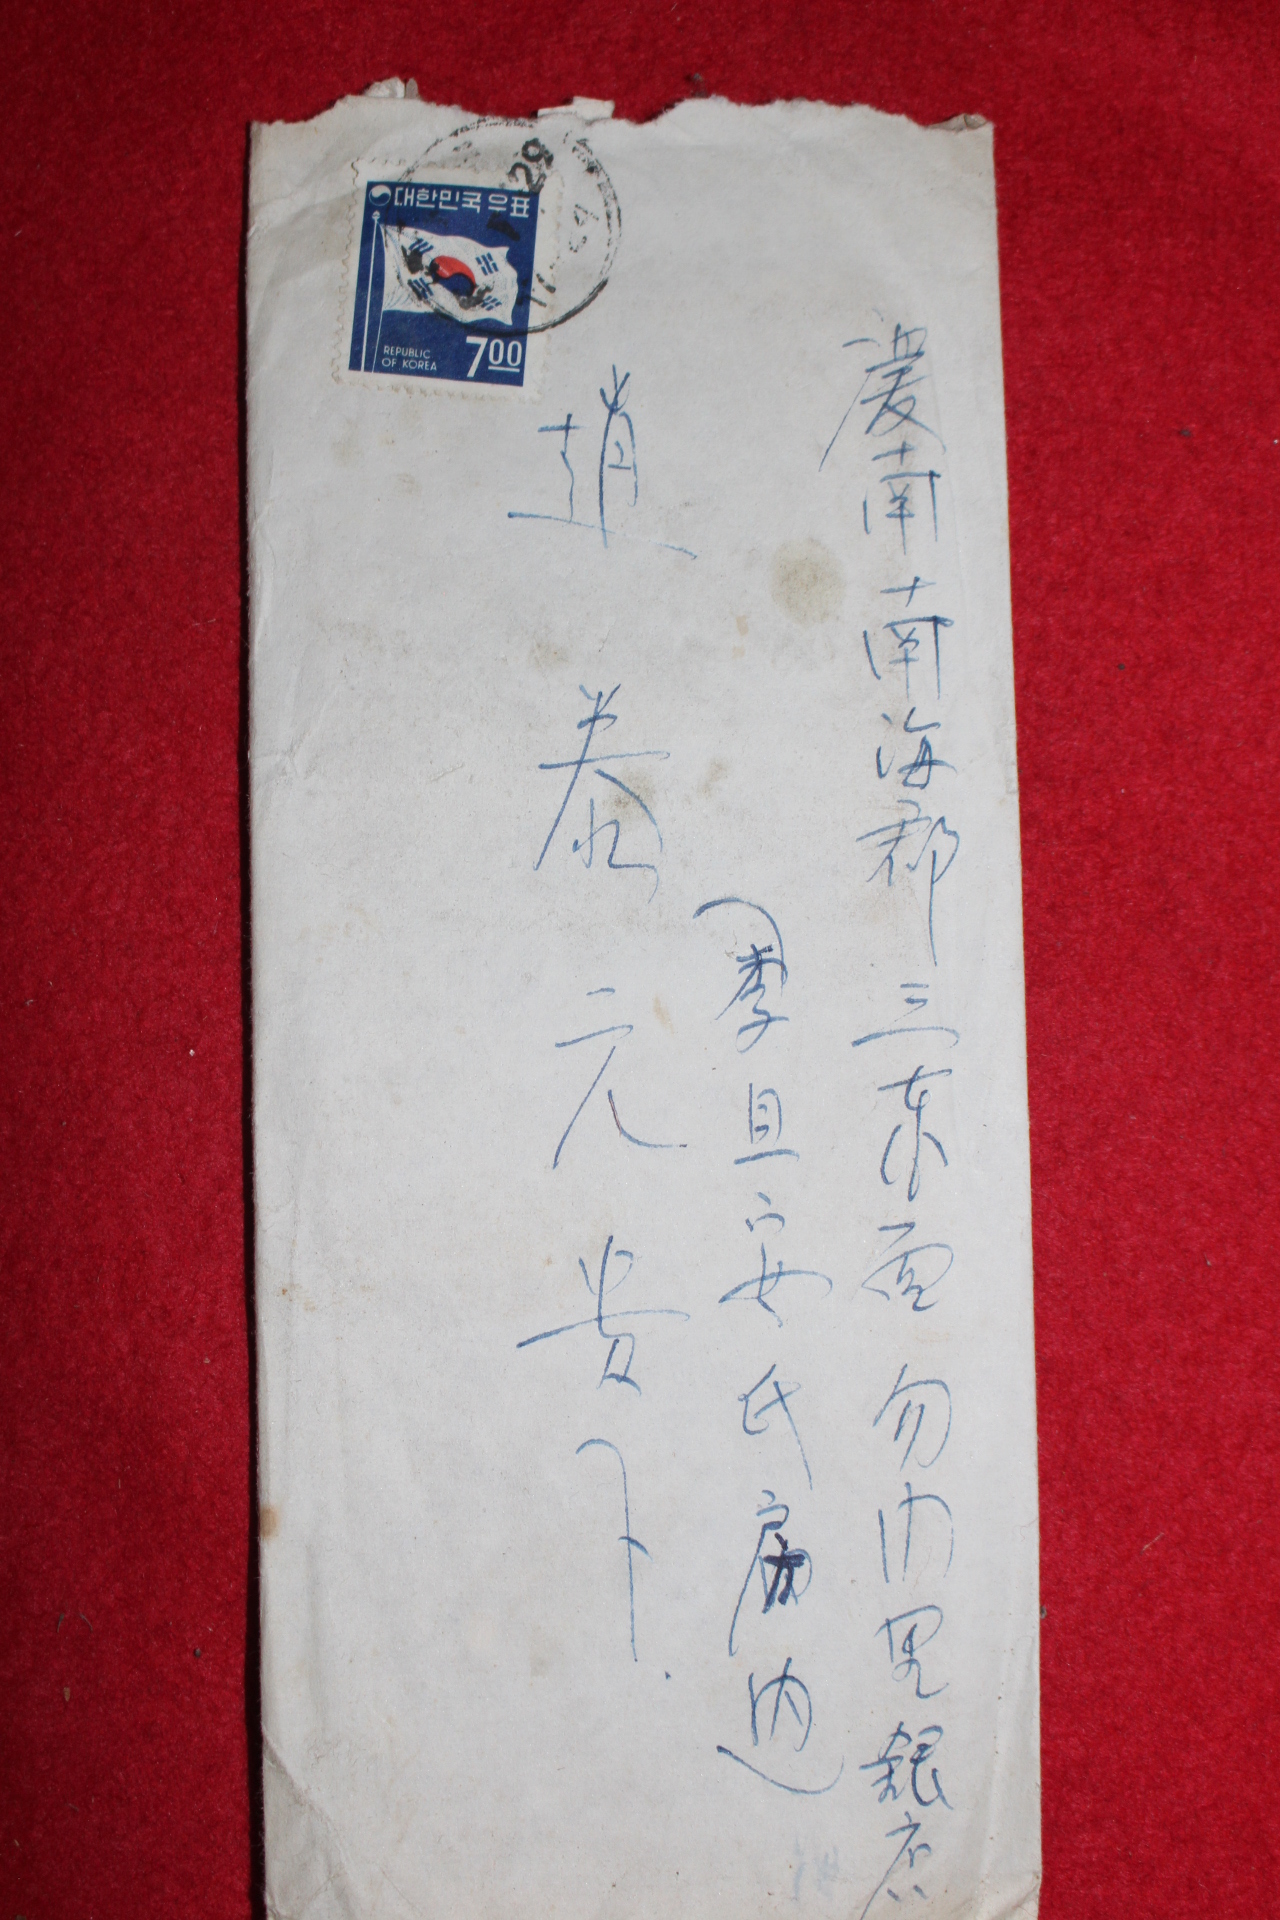 대한민국우표
REPUBLIC
OF KOREA
700
29
慶南南海郡三東面勿巾里銀店
(李且安氏宅内)
趙泰元貴下